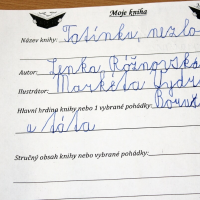 Moje kniha
Název knihy: Tatínku, nezlo
Autor: Lenka, Rožnovská
Ilustrátor: Markéta Vydr
Hlavní hrdina knihy nebo 1 vybrané pohádky:
a táta
Stručný obsah knihy nebo vybrané pohádky: